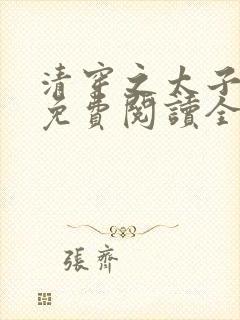 清穿之太子
免費閱讀全
張齊